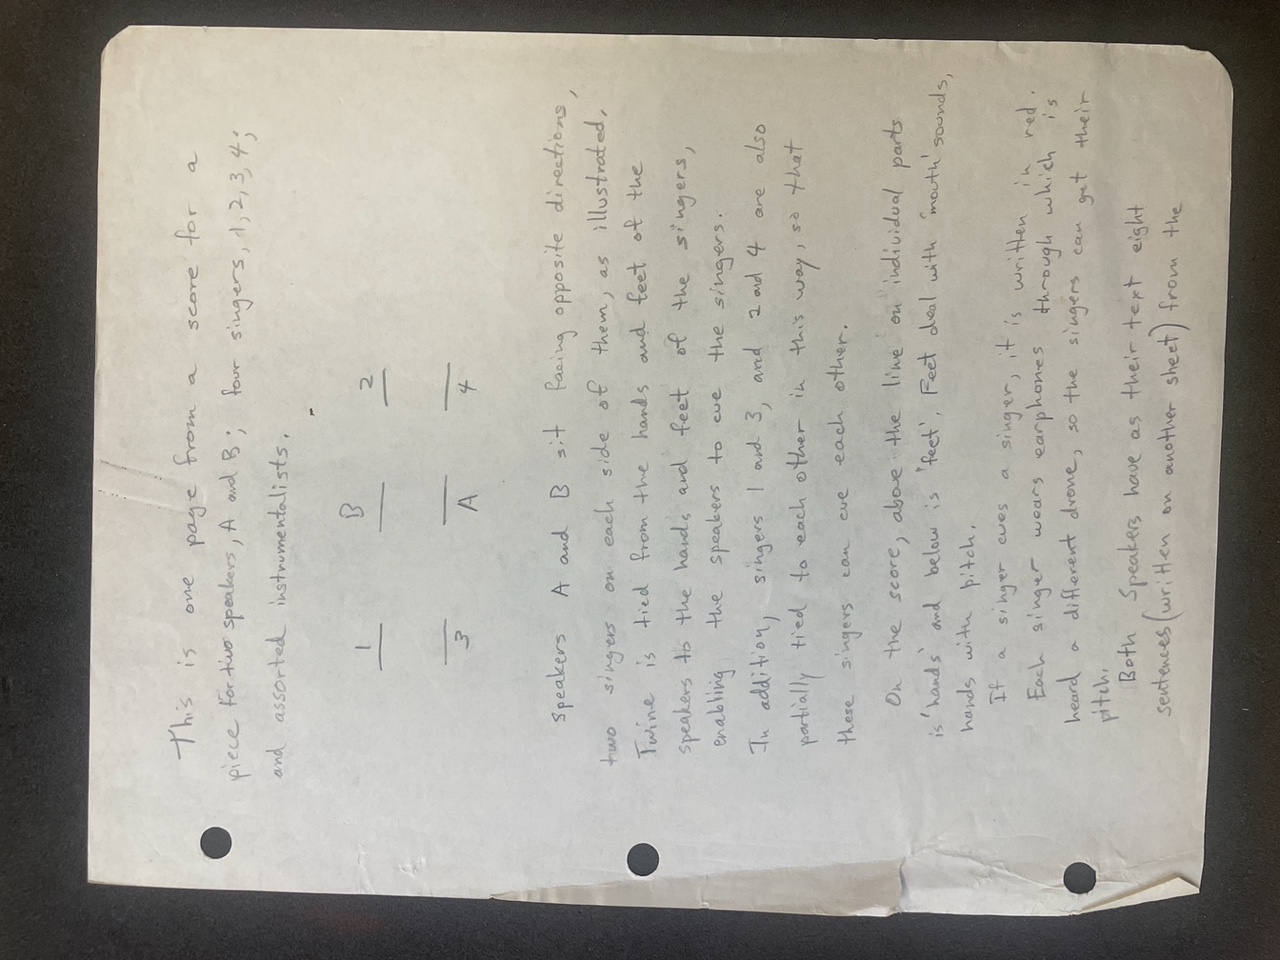 This is one page from a score for a
piece for two speakers, A and B; four singers, 1,2,3,4;
and assorted instrumentalists.
1 B 2
3 A 4
Speakers A and B sit facing opposite directions,
two singers on each side of them, as illustrated,
Twine is tied from the hands and feet of the
speakers to the hands and feet of the singers,
enabling the speakers to cue the singers.
In addition, singers 1 and 3, and 2 and 4 are also
partially tied to each other in this way, so that
these singers can cue each other.
On the score, above the 'line' on individual parts
is 'hands' and below is 'feet'. Feet deal with 'mouth' sounds,
hands with pitch.
If a singer cues a singer, it is written in red.
Each singer wears earphones through which is
heard a different drone, so the singers can get their
pitch.
Both speakers have as their text eight
sentences (written on another sheet) from the